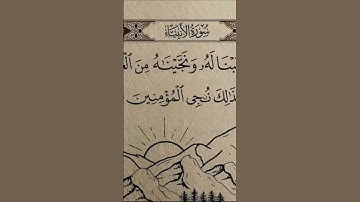 سُورَةُ الأَنبِيَاءِ
بْنَا لَهُۥ وَنَجَّيْنَٰهُ مِنَ ٱلْغَ
ذَٰلِكَ نُۨجِى ٱلْمُؤْمِنِينَ